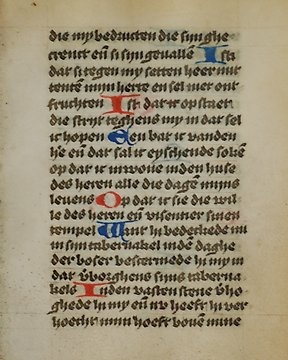 die my bedructen die sijn ghe
crenct eñ si sijn geuallẽ Ist
dat si tegen my setten heer nut
tentẽ mijn herte en sel niet ont
fruchten Ist dat er op staet
die strijt teghens my in dat sel
ic hopen Een bat ic vanden
hẽ eñ dat sal ic eyschende sokẽ
op dat ic in wone inden huse
des heren alle die dagẽ mijns
leuens Op dat ic sie die wil
le des heren eñ visenier sinen
tempel Want hi bedectede mi
in sijn tabernakel inden daghe
der boser bescermede hi my in
dat v̄borghens sijns taberna
kels Inden vasten stene v̄ho
ghede hi my eñ nv heeft hi ver
hoecht mijn hoeft bouẽ mine